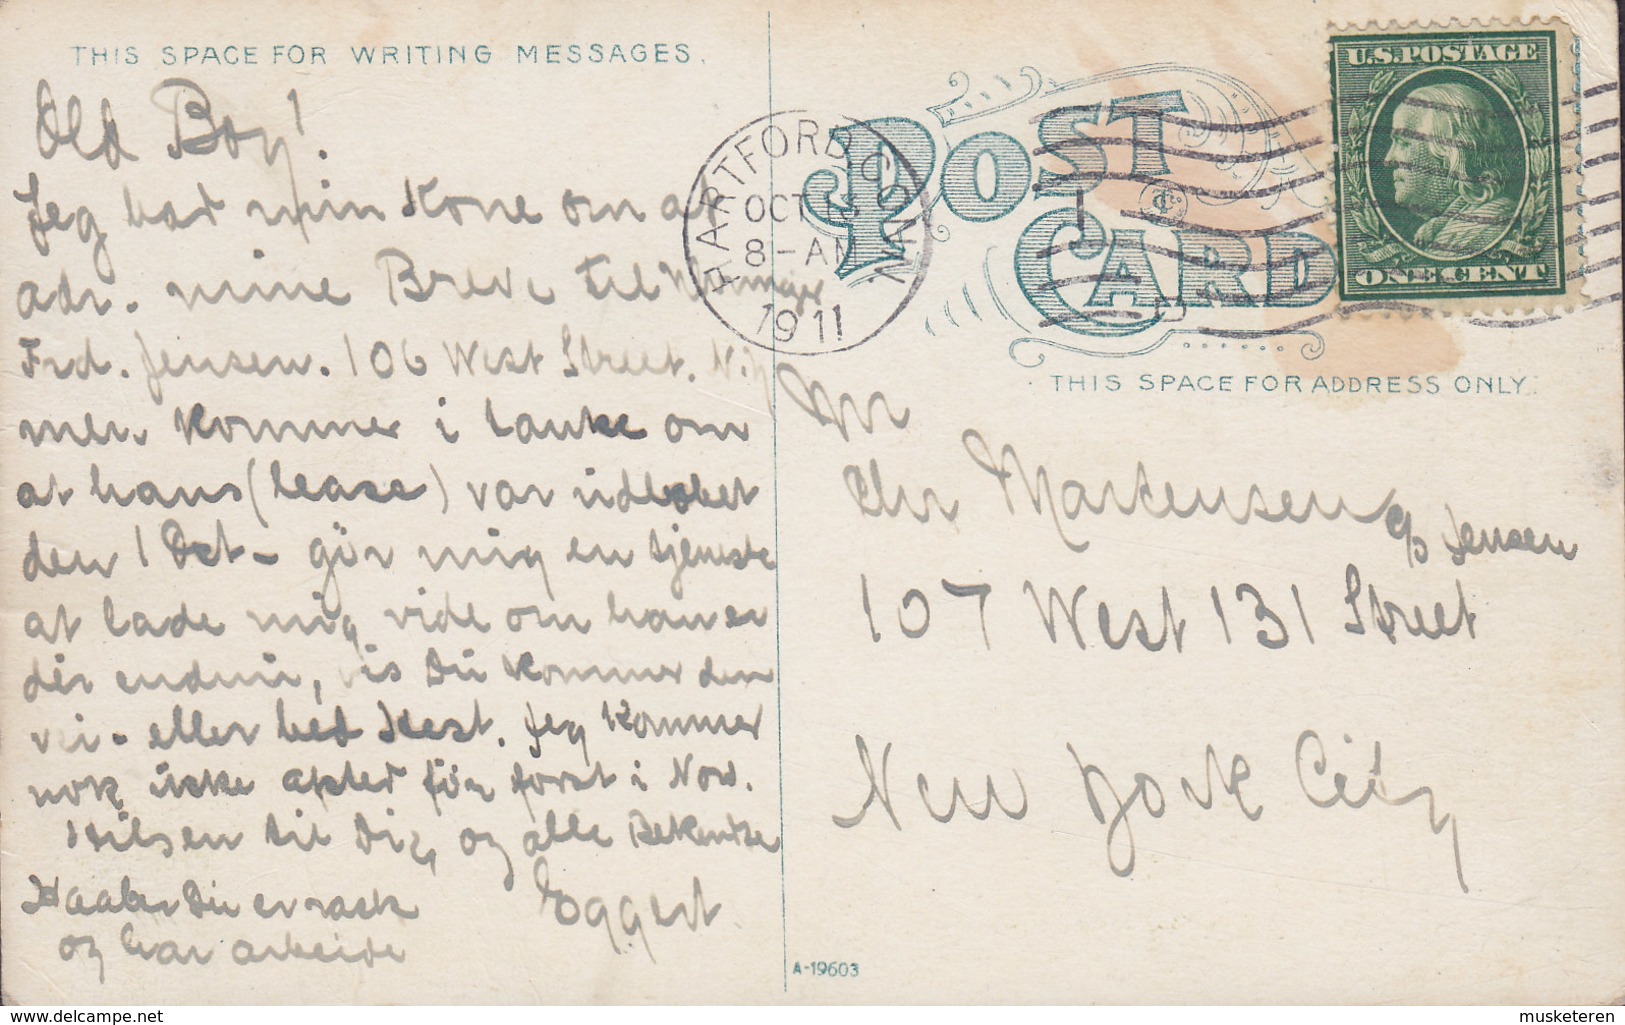 THIS SPACE FOR WRITING MESSAGES.
Old Boy!
Jeg bad min Kone om at
adr. mine Breve til
Frd. Jensen. 106 West Street. N.Y
men kommer i tanke om
at hans (lease) var udløbet
den 1 Oct - gör mig en tjeneste
at lade mig vide om han er
dér endnu, vis Du kommer den
vei - eller bed Hest. Jeg kommer
nok ikke afsted för först i Nov.
Hilsen til Dig, og alle Bekendte
Haaber Du er rask
og har arbeide
Eggert
A-19603
POST CARD
HARTFORD, CONN.
OCT 18
8-AM
1911
U.S. POSTAGE
ONE CENT
THIS SPACE FOR ADDRESS ONLY.
Mr
Chr Martensen c/o Jensen
107 West 131 Street
New York City
the-collection.delcampe.net
musketeren